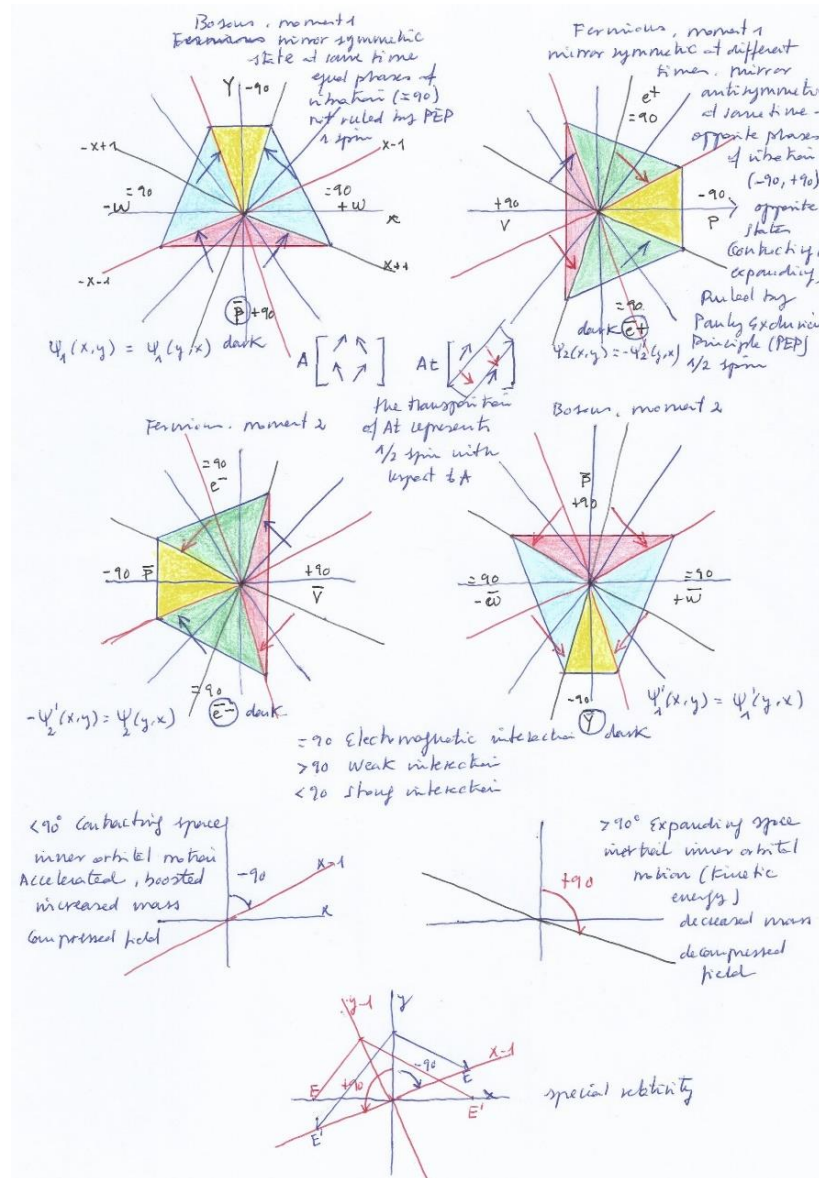 Bosons, moment 1
Fermions mirror symmetric
state at same time
equal phases of
vibration (=90)
not ruled by PEP
1 spin
Y -90
-x+1
x-1
=90
-W
=90
+W
x
-x-1
x+1
P̅ +90
dark
Ψ₁(x,y) = Ψ₁(y,x)
Fermions, moment 1
mirror symmetric at different
times. mirror
antisymmetric
at same time -
opposite phases
of vibration
(-90, +90)
opposite
states
Contracting,
expanding,
Ruled by
Pauly Exclusion
Principle (PEP)
1/2 spin
e+
=90
+90
V
-90
P
=90
dark e̅+
Ψ₂(x,y) = -Ψ₂'(y,x)
A
At
the transposition
of At represents
1/2 spin with
respect to A
Fermions. moment 2
=90
e-
-90 P̅
+90
V̅
=90
e̅- dark
-Ψ₂'(x,y) = Ψ₂(y,x)
Bosons, moment 2
P̅
+90
=90
-W̅
=90
+W̅
-90
Y̅
dark
Ψ₁'(x,y) = Ψ₁'(y,x)
=90 Electromagnetic interaction
>90 Weak interaction
<90 strong interaction
<90° Contracting space
inner orbital motion
Accelerated, boosted
increased mass
Compressed field
-90
x-1
x
>90° Expanding space
inertial inner orbital
motion (kinetic
energy)
decreased mass
decompressed
field
+90
y-1
y
x-1
-90
+90
E
E
x
E'
E'
special relativity